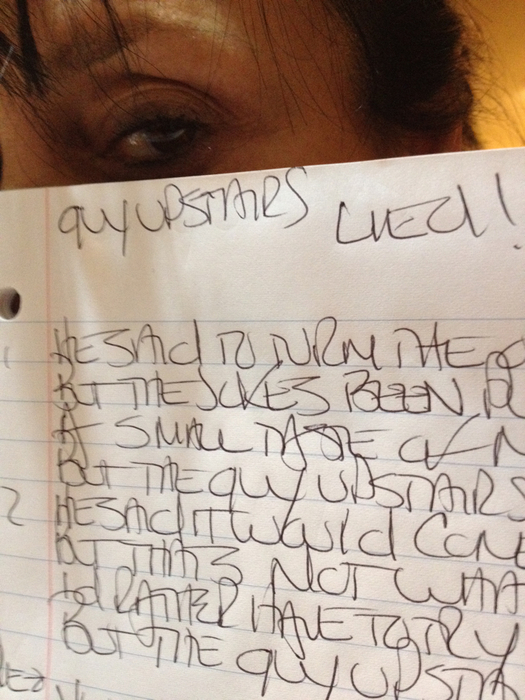 GUY UPSTAIRS LIED!
1 HE SAID TO TURN THE
BUT THE JOKES BEEN
A SMALL TASTE
BUT THE GUY UPSTAIRS
2 HE SAID IT WOULD
BUT THATS NOT WHAT
I'd RATHER HAVE TO TRY
BUT THE GUY UPSTA